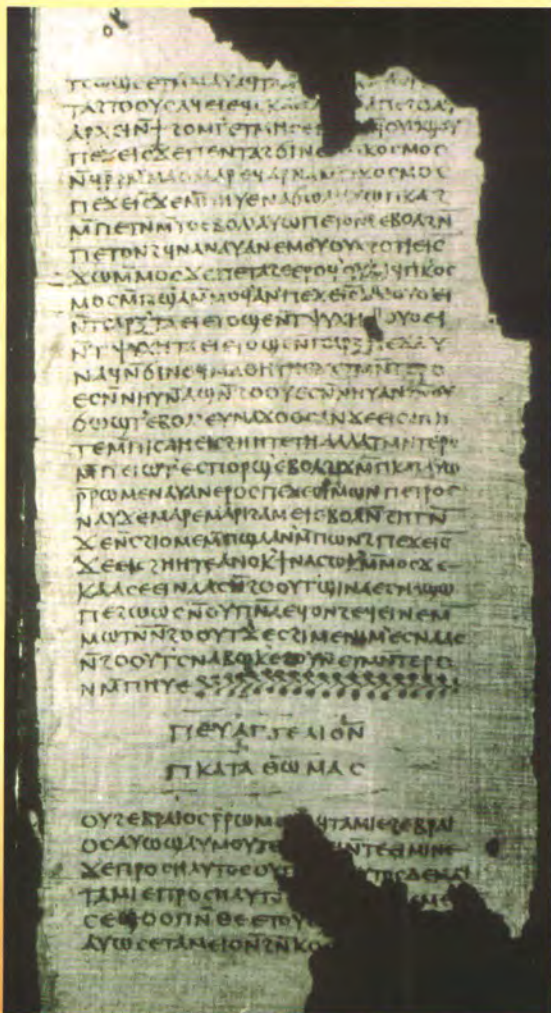 ⲧⲥⲱϣⲉ ⲉⲧⲙⲙⲁⲩ
ⲧⲁϩⲧⲟⲟⲩⲥ ⲁϥⲉⲓ ⲉϥⲥⲕⲁⲉⲓ
ⲁⲣⲭⲉⲓ ⲛ̄ϯ ϩⲟⲙⲧ ⲉⲧⲙⲏⲥⲉ
ⲡⲉϫⲉ ⲓ̅ⲥ̅ ϫⲉ ⲡⲉⲛⲧⲁϩϭⲓⲛⲉ ⲕⲟⲥⲙⲟⲥ
ⲛ̄ϥⲣ̄ ⲣⲙ̄ⲙⲁⲟ ⲙⲁⲣⲉϥⲁⲣⲛⲁ ⲙ̄ⲡⲕⲟⲥⲙⲟⲥ
ⲡⲉϫⲉ ⲓ̅ⲥ̅ ϫⲉ ⲙ̄ⲡⲏⲩⲉ ⲛⲁϭⲱⲗ ⲁⲩⲱ ⲡⲕⲁϩ
ⲙ̄ⲡⲉⲧⲛ̄ⲙⲧⲟ ⲉⲃⲟⲗ ⲁⲩⲱ ⲡⲉⲧⲟⲛϩ ⲉⲃⲟⲗ ϩⲛ̄
ⲡⲉⲧⲟⲛϩ ϥⲛⲁⲛⲁⲩ ⲁⲛ ⲉⲙⲟⲩ ⲟⲩⲭ ϩⲟⲧⲓ ⲉⲓ̅ⲥ̅
ϫⲱ ⲙ̄ⲙⲟⲥ ϫⲉ ⲡⲉⲧⲁϩⲉ ⲉⲣⲟϥ ⲟⲩⲁⲁϥ ⲡⲕⲟⲥ
ⲙⲟⲥ ⲙ̄ⲡϣⲁ ⲙ̄ⲙⲟϥ ⲁⲛ ⲡⲉϫⲉ ⲓ̅ⲥ̅ ϫⲉ ⲟⲩⲟⲉⲓ
ⲛ̄ⲧⲥⲁⲣⲝ ⲧⲁⲉⲓ ⲉⲧⲟϣⲉ ⲛ̄ⲧⲯⲩⲭⲏ ⲟⲩⲟⲉⲓ
ⲛ̄ⲧⲯⲩⲭⲏ ⲧⲁⲉⲓ ⲉⲧⲟϣⲉ ⲛ̄ⲧⲥⲁⲣⲝ ⲡⲉϫⲁⲩ
ⲛⲁϥ ⲛ̄ϭⲓ ⲛⲉϥⲙⲁⲑⲏⲧⲏⲥ ϫⲉ ⲧⲙⲛ̄ⲧⲉⲣⲟ
ⲉⲥⲛ̄ⲛⲏⲩ ⲛ̄ⲁϣ ⲛ̄ϩⲟⲟⲩ ⲉⲥⲛ̄ⲛⲏⲩ ⲁⲛ ϩⲛ̄ ⲟⲩ
ϭⲱϣⲧ ⲉⲃⲟⲗ ⲉⲩⲛⲁϫⲟⲟⲥ ⲁⲛ ϫⲉ ⲉⲓⲥ ϩⲏⲏ
ⲧⲉ ⲙ̄ⲡⲓⲥⲁ ⲏ ⲉⲓⲥ ϩⲏⲏⲧⲉ ⲧⲏ ⲁⲗⲗⲁ ⲧⲙⲛ̄ⲧⲉⲣⲟ
ⲙ̄ⲡⲉⲓⲱⲧ ⲉⲥⲡⲟⲣϣ ⲉⲃⲟⲗ ϩⲓϫⲙ̄ ⲡⲕⲁϩ ⲁⲩⲱ
ⲣ̄ⲣⲱⲙⲉ ⲛⲁⲩ ⲁⲛ ⲉⲣⲟⲥ ⲡⲉϫⲉ ⲥⲓⲙⲱⲛ ⲡⲉⲧⲣⲟⲥ
ⲛⲁⲩ ϫⲉ ⲙⲁⲣⲉ ⲙⲁⲣⲓϩⲁⲙ ⲉⲓ ⲉⲃⲟⲗ ⲛ̄ϩⲏⲧⲛ̄
ϫⲉ ⲛ̄ⲥϩⲓⲟⲙⲉ ⲙ̄ⲡϣⲁ ⲁⲛ ⲙ̄ⲡⲱⲛϩ ⲡⲉϫⲉ ⲓ̅ⲥ̅
ϫⲉ ⲉⲓⲥ ϩⲏⲏⲧⲉ ⲁⲛⲟⲕ ϯⲛⲁⲥⲱⲕ ⲙ̄ⲙⲟⲥ ϫⲉ
ⲕⲁⲁⲥ ⲉⲉⲓⲛⲁⲁⲥ ⲛ̄ϩⲟⲟⲩⲧ ϣⲓⲛⲁ ⲉⲥⲛⲁϣⲱ
ⲡⲉ ϩⲱⲱⲥ ⲛ̄ⲟⲩⲡ̅ⲛ̅ⲁ̅ ⲉϥⲟⲛϩ ⲉϥⲉⲓⲛⲉ ⲙ̄
ⲙⲱⲧⲛ̄ ⲛ̄ϩⲟⲟⲩⲧ ϫⲉ ⲥϩⲓⲙⲉ ⲛⲓⲙ ⲉⲥⲛⲁⲁⲥ
ⲛ̄ϩⲟⲟⲩⲧ ⲥⲛⲁⲃⲱⲕ ⲉϩⲟⲩⲛ ⲉⲧⲙⲛ̄ⲧⲉⲣⲟ
ⲛⲙ̄ⲡⲏⲩⲉ
ⲡⲉⲩⲁⲅⲅⲉⲗⲓⲟⲛ
ⲡⲕⲁⲧⲁ ⲑⲱⲙⲁⲥ
ⲟⲩϩⲉⲃⲣⲁⲓⲟⲥ ⲣ̄ⲣⲱⲙⲉ ⲧⲁⲙⲓⲉ ϩⲉⲃⲣⲁⲓ
ⲟⲥ ⲁⲩⲱ ϣⲁⲩⲙⲟⲩⲧⲉ ⲛ̄ⲧⲉⲉⲓⲙⲓⲛⲉ
ϫⲉ ⲡⲣⲟⲥⲏⲗⲩⲧⲟⲥ ⲟⲩ ⲗⲩⲧⲟⲥ ⲇⲉ ⲙⲁϥ
ⲧⲁⲙⲓⲉ ⲡⲣⲟⲥⲏⲗⲩⲧⲟⲥ ⲙⲉ
ⲥⲉϣⲟⲟⲡ ⲛ̄ⲑⲉ ⲉⲧⲟⲩ
ⲁⲩⲱ ⲥⲉⲧⲁⲙⲉⲓⲟ ⲛ̄ϩⲛ̄ⲕⲟ